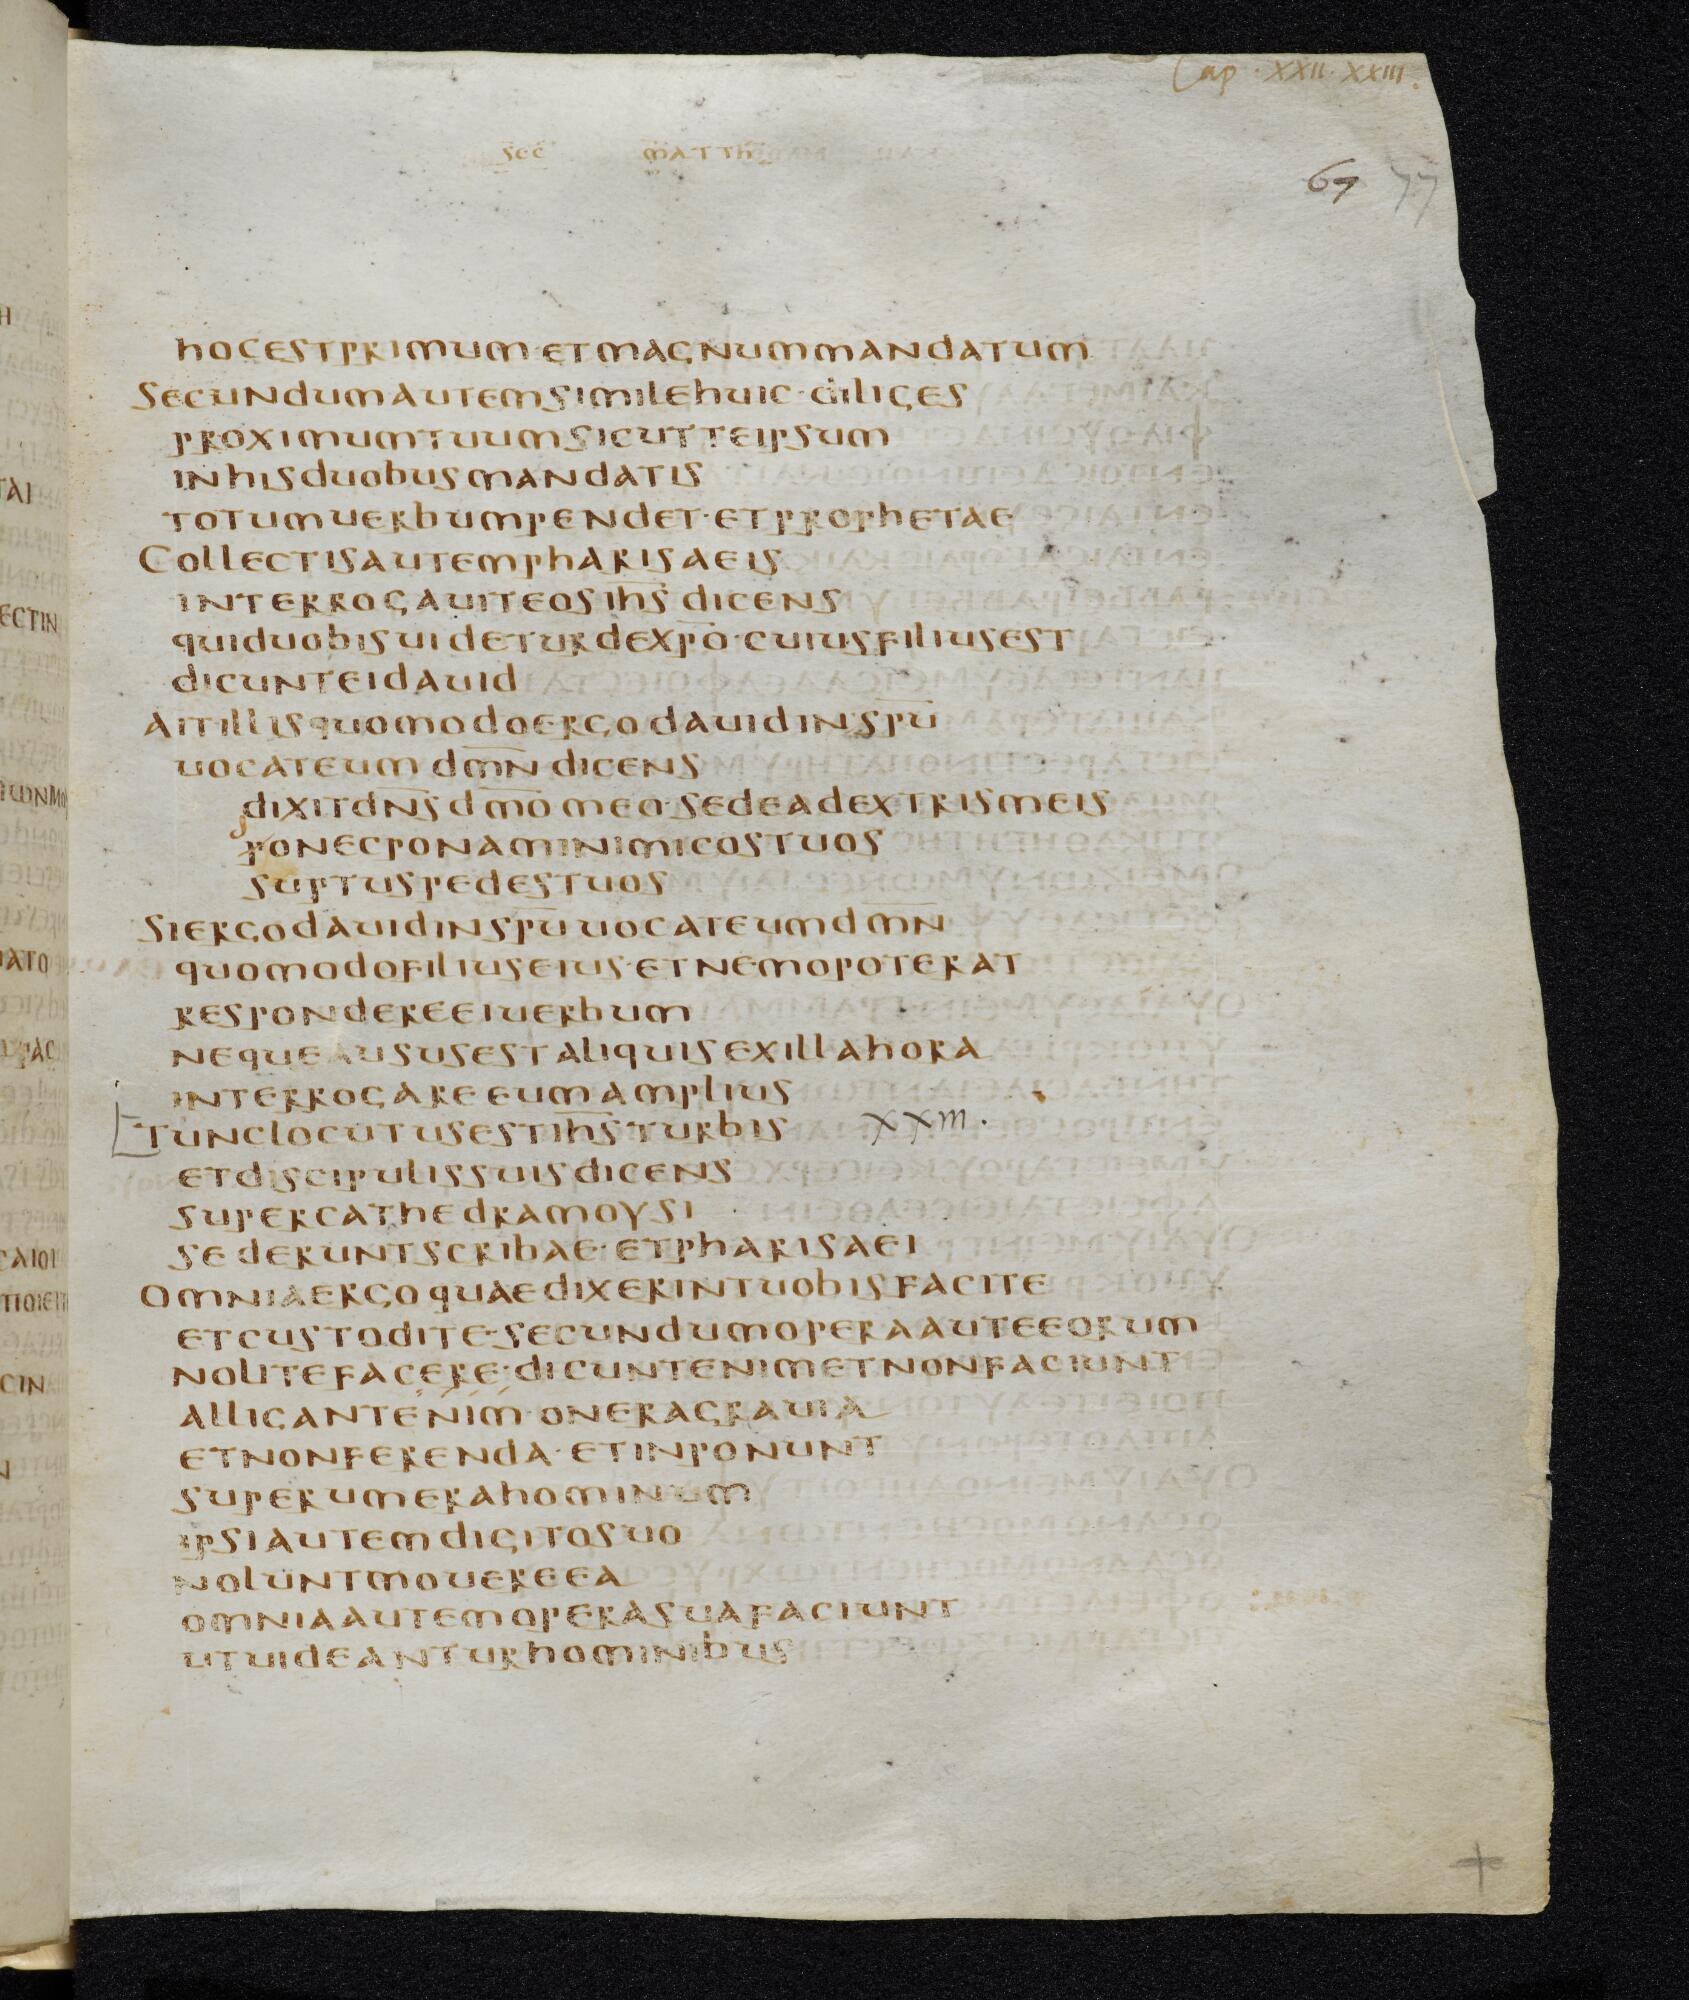 Cap · XXII · XXIII.
sec matth
67 77
hocestprimum·etmagnummandatum
Secundumautemsimilehuic·diliges
proximumtuumsicutteipsum
inhisduobusmandatis
totumuerbumpendet·etprophetae
Collectisautempharisaeis
interrogauiteosih̅s̅dicens
quiduobisuideturdexp̅o̅·cuiusfiliusest
dicunteidauid
Aitillisquomodoergodauidins̅p̅u̅
uocateumd̅m̅n̅dicens
dixitd̅n̅s̅d̅m̅o̅meo·sedeadextrismeis
donecponaminimicostuos
suptuspedestuos
Siergodauidins̅p̅u̅uocateumd̅m̅n̅
quomodofiliuseius·etnemopoterat
respondereeiuerbum
nequeaususestaliquisexillahora
interrogareeumamplius
Tunclocutusestih̅s̅turbis XXIII.
etdiscipulissuisdicens
supercathedramoysi
sederuntscribae·etpharisaei
Omniaergoquaedixerintuobisfacite
etcustodite·secundumoperaauteeorum
nolitefacere·dicuntenimetnonfaciunt
alligantenim·oneragrauia
etnonferenda·etinponunt
superumerahominum
ipsiautemdigitosuo
noluntmouereea
omniaautemoperasuafaciunt
utuideanturhominibus